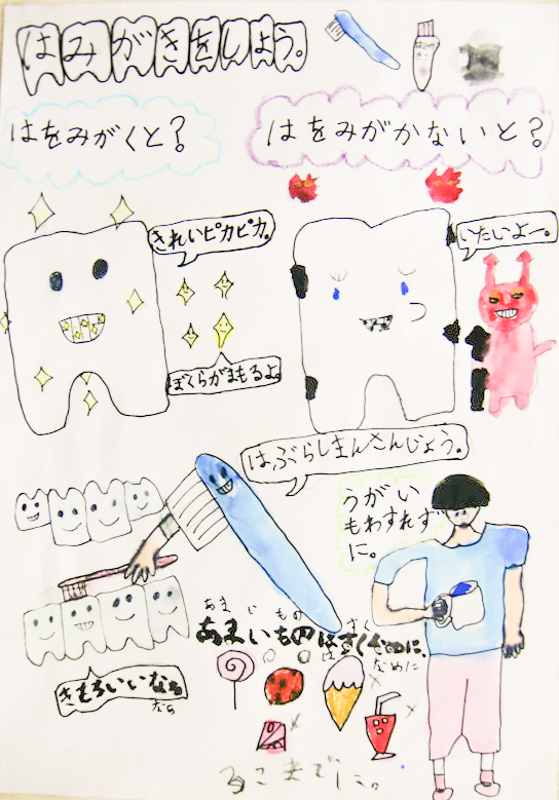 はみがきをしよう。
はをみがくと?
はをみがかないと?
きれいピカピカ。
いたいよー。
ぼくらがまもるよ
は、ぶらしまんさんじょう。
うがい
もわすれず
に。
あまいもの
あまいものはすくなめに、
なめに
きもちいいなぁ
なぁ